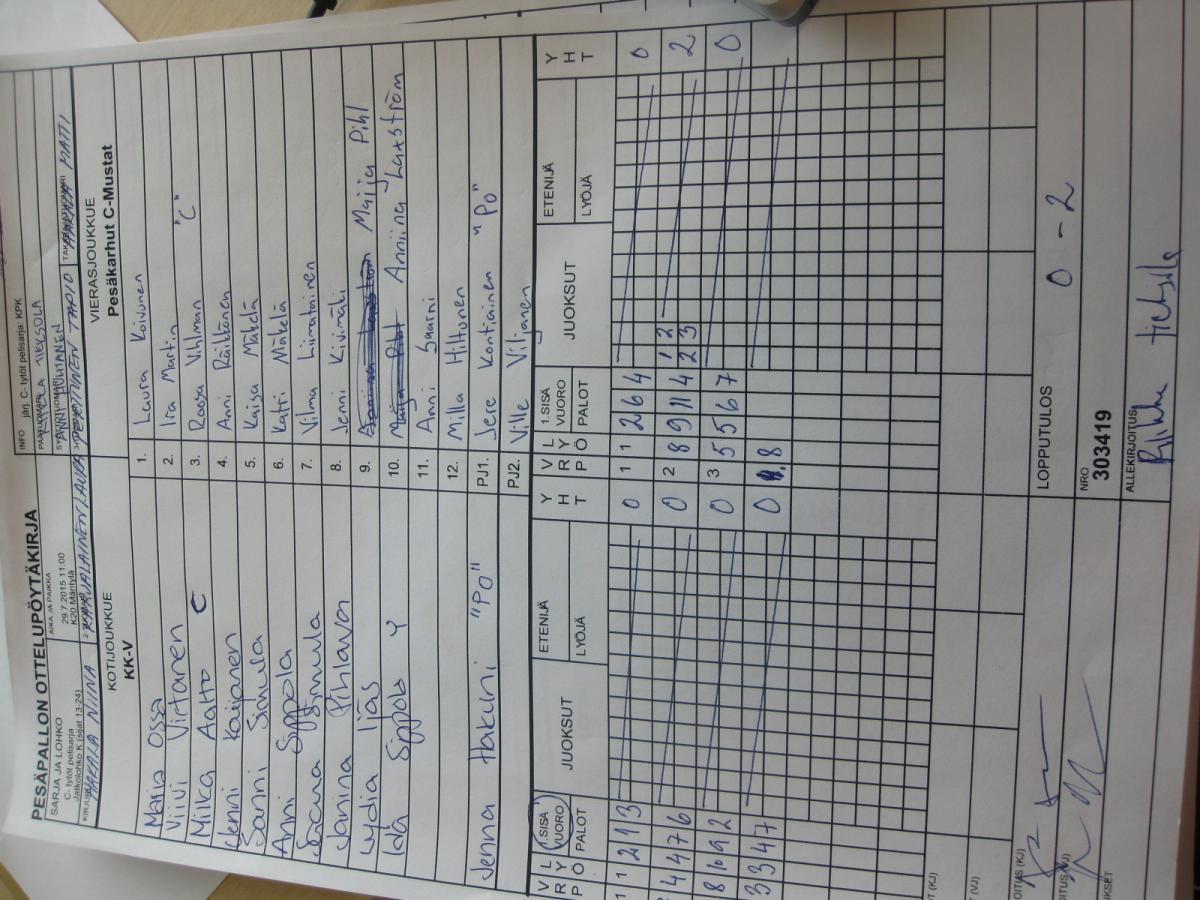 PESÄPALLON OTTELUPÖYTÄKIRJA
INFO järj. C- tytöt pelisarja: KPK
SARJA JA LOHKO
C- tytöt pelisarja
Jatkolohko K (sijat 13-24)
AIKA JA PAIKKA
29.7.2015 11:00
K20 Mäntylä
PÄÄTUOMARI
SYÖTTÖTUOMARI
KIRJURI HAKALA NIINA
KOTIJOUKKUE
KK-V
VIERASJOUKKUE
Pesäkarhut C-Mustat
Maija Ossa 1. Laura Koivunen
Viivi Virtanen 2. Ira Martin
Miika Aalto C 3. Roosa Vihlman "C"
Jenni Kaijanen 4. Anni Räikkönen
Sanni Simula 5. Kaisa Mäkelä
Anni Sippola 6. Katri Mäkelä
Simula 7. Vilma Liimatainen
Janina Pihlava 8. Jenni Kivimäki
Lydia Ijäs 9. Maija Pihl
Sippola Y 10. Anniina Laxström
11. Anni Saarni
12. Milla Hiltunen
Jenna Hakuni "PO" PJ1. Jere Kontiainen "PO"
PJ2. Ville Viljanen
V R P L Y Ö 1.SISÄ VUORO PALOT JUOKSUT ETENIJÄ LYÖJÄ Y H T V R P L Y Ö 1.SISÄ VUORO PALOT JUOKSUT ETENIJÄ LYÖJÄ Y H T
1 1 2 1 3 0 1 1 2 6 4 0
2 4 4 7 6 0 2 8 9 11 4 1 2 2 3 2
8 10 9 2 0 3 5 5 6 7 0
3 3 4 7 0 8
LOPPUTULOS 0 - 2
NRO
303419
ALLEKIRJOITUS